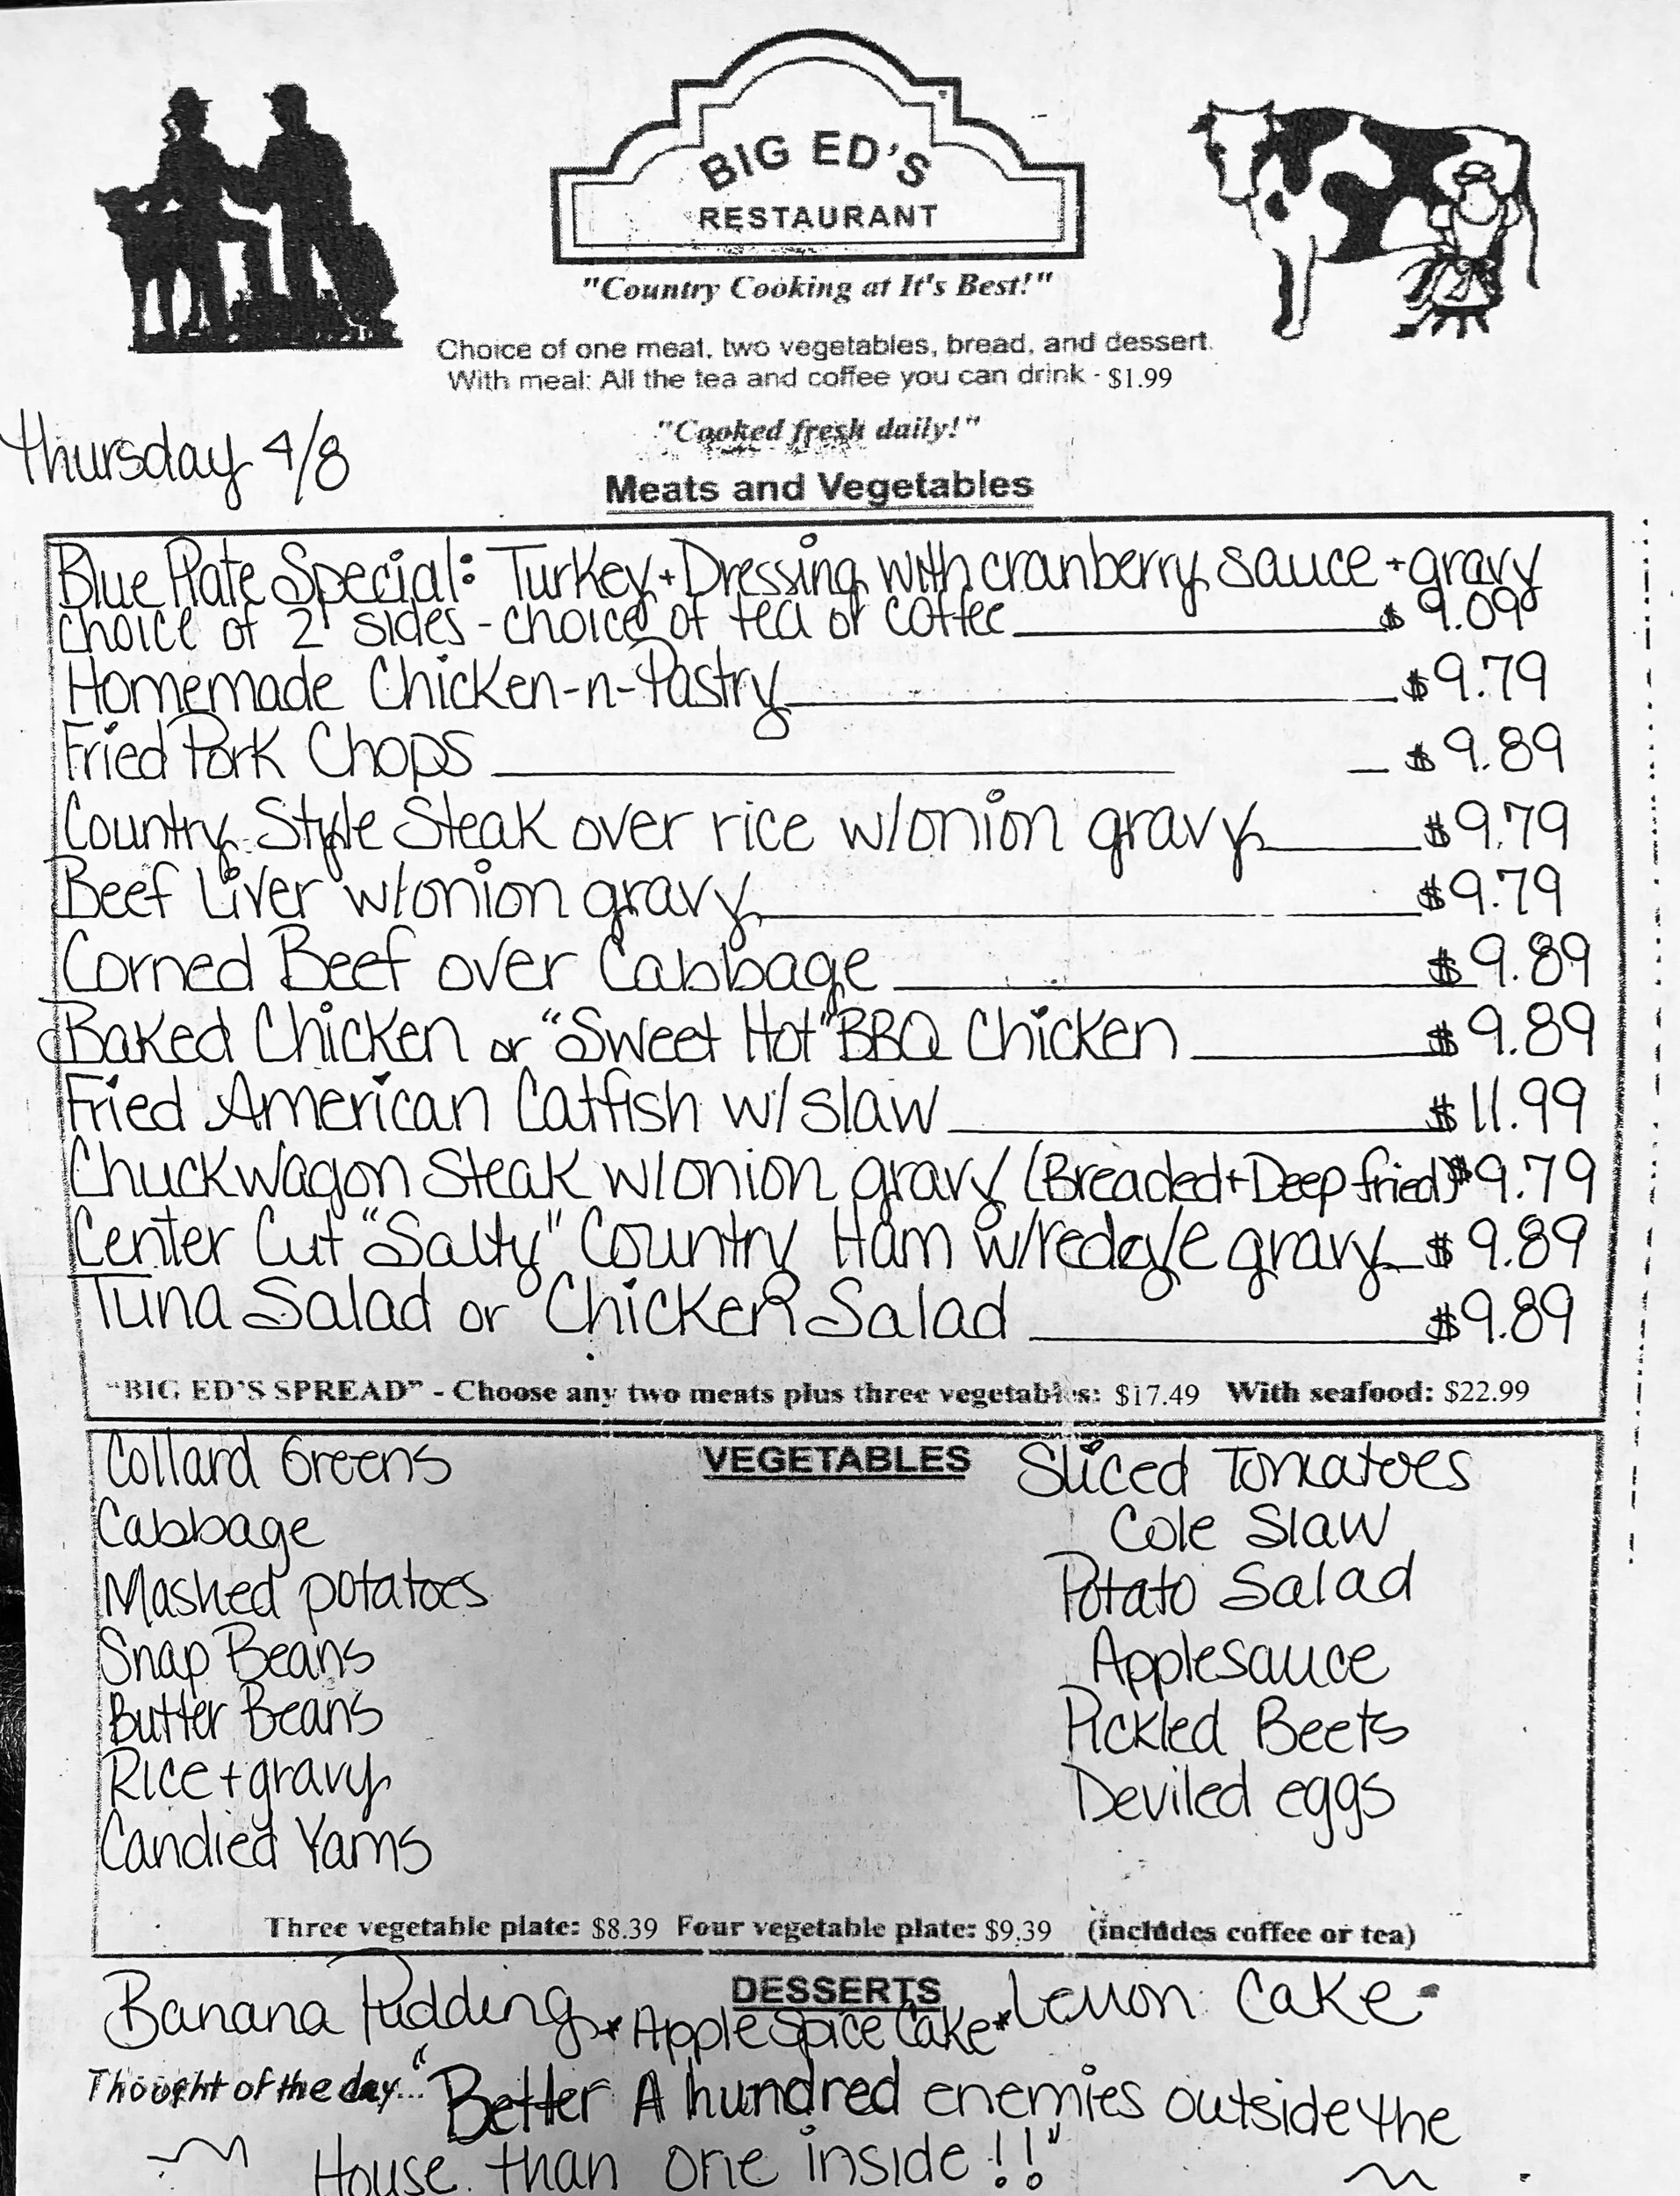 BIG ED'S
RESTAURANT
"Country Cooking at It's Best!"
Choice of one meat, two vegetables, bread, and dessert.
With meal: All the tea and coffee you can drink - $1.99
"Cooked fresh daily!"
Thursday 4/8
Meats and Vegetables
Blue Plate Special: Turkey + Dressing with cranberry sauce + gravy
choice of 2 sides - choice of tea or coffee $9.09
Homemade Chicken-n-Pastry $9.79
Fried Pork Chops $9.89
Country Style Steak over rice w/onion gravy $9.79
Beef Liver w/onion gravy $9.79
Corned Beef over Cabbage $9.89
Baked Chicken or "Sweet Hot" BBQ Chicken $9.89
Fried American Catfish w/slaw $11.99
Chuckwagon Steak w/onion gravy (Breaded + Deep fried) $9.79
Center Cut "Salty" Country Ham w/redeye gravy $9.89
Tuna Salad or Chicken Salad $9.89
"BIG ED'S SPREAD" - Choose any two meats plus three vegetables: $17.49 With seafood: $22.99
VEGETABLES
Collard Greens
Cabbage
Mashed potatoes
Snap Beans
Butter Beans
Rice + gravy
Candied Yams
Sliced Tomatoes
Cole Slaw
Potato Salad
Applesauce
Pickled Beets
Deviled eggs
Three vegetable plate: $8.39 Four vegetable plate: $9.39 (includes coffee or tea)
DESSERTS
Banana Pudding * Apple Spice Cake * Lemon Cake
Thought of the day... "Better A hundred enemies outside the
House than one inside!!"